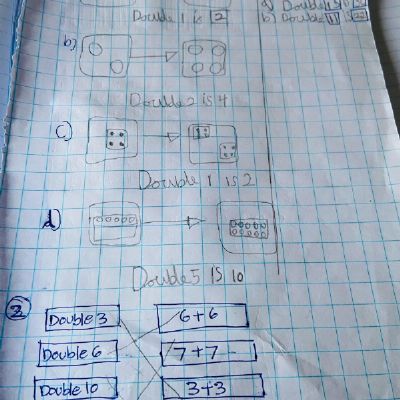 Double 1 is 2
b)
Double 2 is 4
c)
Double 1 is 2
d)
Double 5 is 10
2
Double 3 6+6
Double 6 7+7
Double 10 3+3
b) Double 11 is 22